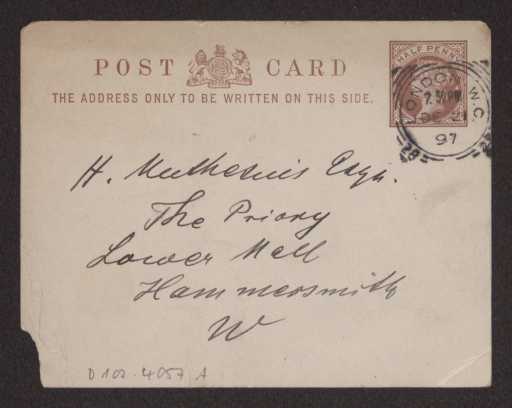 HALF PENNY
POST CARD
THE ADDRESS ONLY TO BE WRITTEN ON THIS SIDE.
LONDON. W.C.
7.30 PM
DE 21
97
28
H. Muthesius Esqu.
The Priory
Lower Mall
Hammersmith
W
D 102-4057 A